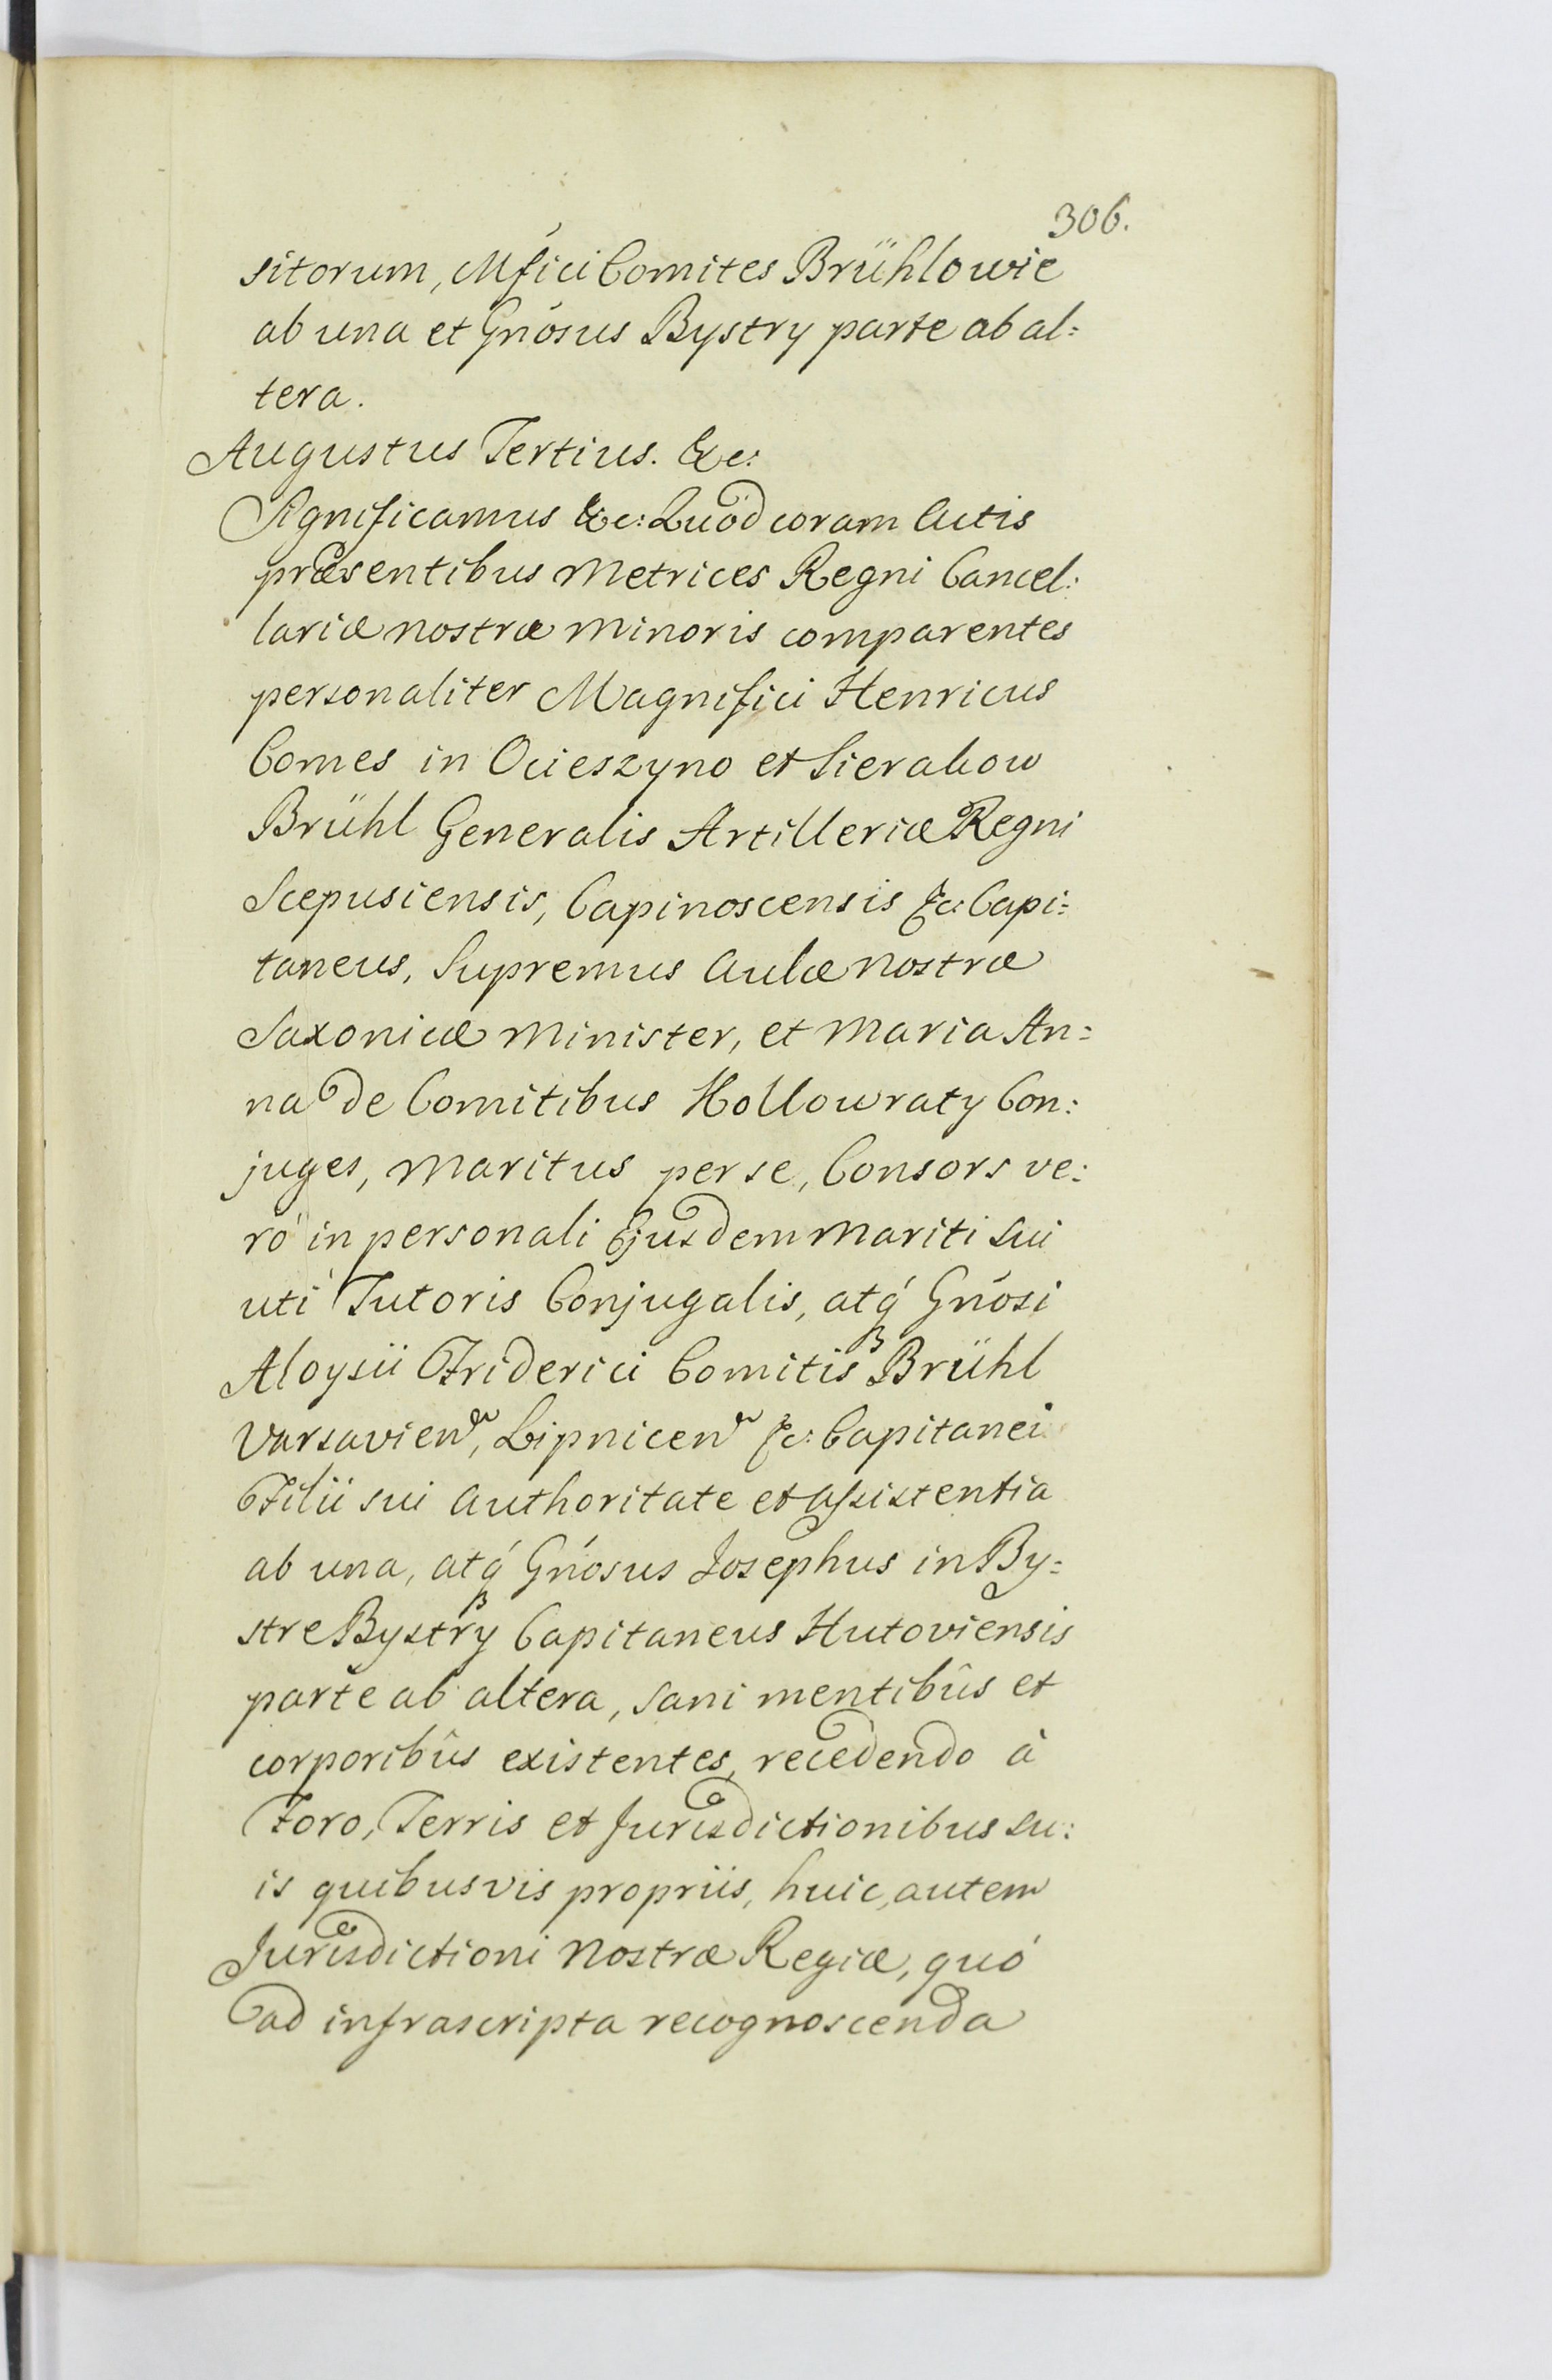 306.
sitorum, Mfici Comites Brühlowie
ab una et Gnosus Bystry parte ab al=
tera.
Augustus Tertius. &c:
Significamus &c: Quod coram Actis
præsentibus Metrices Regni Cancel:
lariæ nostræ minoris comparentes
personaliter Magnifici Henricus
Comes in Ocieszyno et Sierakow
Brühl Generalis Artilleriæ Regni
Scepusiensis, Capinoscensis &c: Capi=
taneus, Supremus Aulæ nostræ
Saxonicæ Minister, et Maria An=
na de Comitibus Kollowraty Con:
juges, Maritus per se, Consors ve:
ro in personali Ejusdem Mariti sui
uti Tutoris Conjugalis, atq́ Gnósi
Aloysii Friderici Comitis Brühl
Varsavien, Lipnicen &c: Capitanei
Filii sui Authoritate et Assistentia
ab una, atq́ Gnósus Josephus in By=
stre Bystry Capitaneus Hutoviensis
parte ab altera, sani mentibûs et
corporibûs existentes, recedendo à
Foro, Terris et Jurisdictionibus su:
is quibusvis propriis, huic, autem
Jurisdictioni Nostræ Regiæ, quó
ad infrascripta recognoscenda